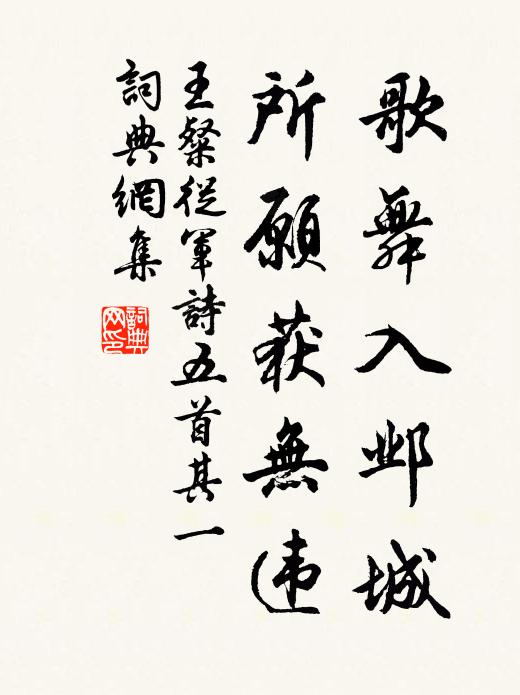 歌舞入邺城
所願获無违
王粲從軍詩五首其一
詞典網集
詞典网印